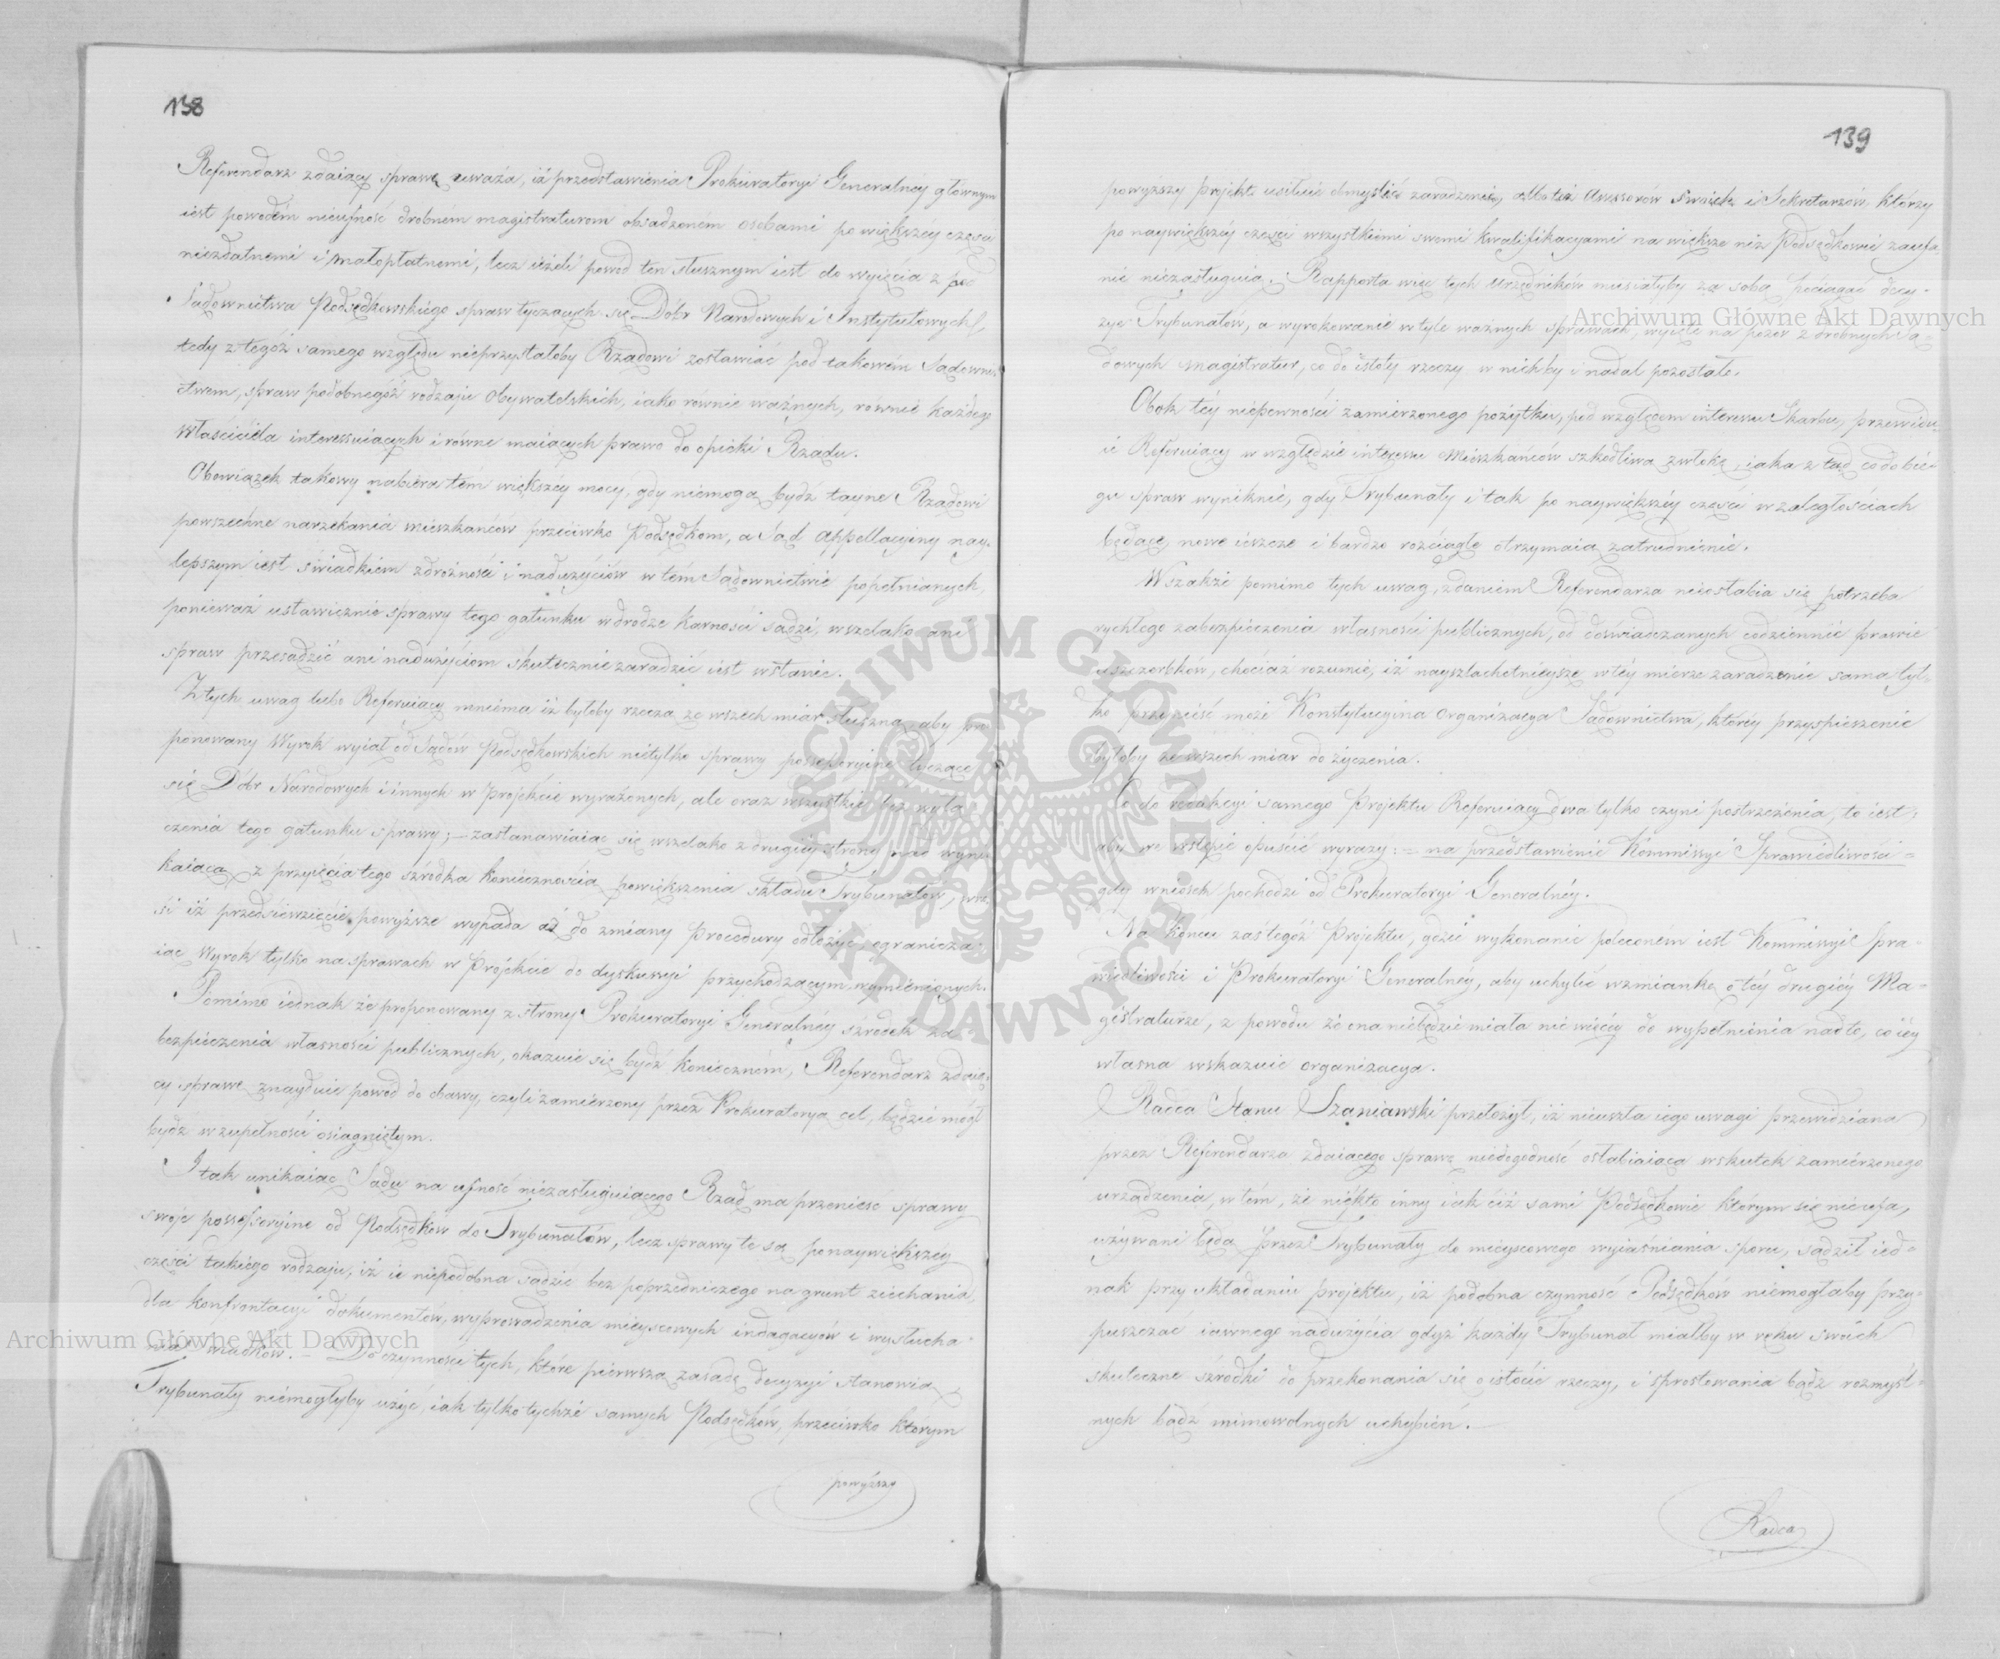 138
Referendarz zdaiący sprawę uważa, iż przedstawienia Prokuratoryi Generalnéy głównym
iest powodem nieufność drobném magistraturom obsadzonem osobami po większéy części
niezdatnemi i małopłatnemi, lecz ieżeli powód ten słusznym iest do wyięcia z pod
Sądownictwa Podsędkowskiego spraw tyczących się Dóbr Narodowych i Instytutowych,
tedy z tegóż samego względu nieprzystałoby Rządowi zostawiać pod takowém Sądowni-
ctwem, spraw podobnegóż rodzaju Obywatelskich, iako rownie ważnych, równie każdego
Właściciela interessuiących i równe maiących prawo do opieki Rządu.
Obowiązek takowy nabiera tém większey mocy, gdy niemogą bydź tayne Rządowi
powszechne narzekania mieszkańców przeciwko Podsędkom, a Sąd Appellacyiny nay-
lepszym iest świadkiem zdrożności i nadużyciów w tém Sądownictwie popełnianych,
ponieważ ustawicznie sprawy tego gatunku w drodze karności sądzi, wszelako ani
spraw przesądzić ani nadużyciom skutecznie zaradzić iest wstanie.
Z tych uwag lubo Referuiący mniema iż byłoby rzeczą ze wszech miar słuszną, aby pro-
ponowany Wyrok wyiął od Sądów Podsędkowskich nietylko sprawy possessoryine tyczące
się Dóbr Narodowych i innych w Projekcie wyrażonych, ale oraz wszystkie bez wyłą-
czenia tego gatunku sprawy; – zastanawiaiąc się wszelako z drugiéy strony nad wyni-
kaiącą z przyięcia tego szródka koniecznością powiększenia składu Trybunałów, wno-
si iż przedsiewzięcie powyższe wypada aż do zmiany Procedury odłożyć, ogranicza-
iąc Wyrok tylko na sprawach w Projekcie do dyskussyi przychodzącym wymienionych.
Pomimo iednak że proponowany z strony Prokuratoryi Generalnéy szrodek za-
bezpieczenia własności publicznych, okazuie się bydź koniecznem, Referendarz zdaią-
cy sprawę znayduie powod do obawy, czyli zamierzony przez Prokuratoryą cel, będzie mógł
bydź w zupełności osiągniętym.
I tak unikaiąc Sądu na ufność niezasługuiącego Rząd ma przenieść sprawy
swoje possessoryine od Podsędków do Trybunałów, lecz sprawy te są po naywiększéy
części takiego rodzaju, iż ie niepodobna sądzić bez poprzedniczego na grunt ziechania,
dla konfrontacyi dokumentów, wyprowadzenia mieyscowych indagacyów i wysłucha-
nia świadków. – Do czynności tych, które pierwszą zasadę decyzyi stanowią
Trybunały niemogłyby użyć, iak tylko tychże samych Podsędków, przeciwko którym
powyższy
139
powyższy Projekt usiłuie obmyślić zaradzenie, albo też Assessorow swoich i Sekretarzów, którzy
po naywiększéy części wszystkiemi swemi kwalifikacyami na większe niż Podsędkowie zaufa-
nie niezasługuią. Rapporta więc tych Urzędników musiałyby za sobą pociągać decy-
zye Trybunałów, a wyrokowanie w tyle ważnych sprawach, wyięte na pozor z drobnych Są-
dowych magistratur, co do istoty rzeczy w nichby i nadal pozostało.
Obok téy niepewności zamierzonego pożytku, pod względem interessu Skarbu, przewidu-
ie Referuiący w względzie interessu Mieszkańców szkodliwą zwłokę, iaka z tąd co do bie-
gu spraw wyniknie, gdy Trybunały i tak po naywiększéy części w zaległościach
będące, nowe ieszcze i bardzo rozciągłe otrzymaią zatrudnienie.
Wszakże pomimo tych uwag, zdaniem Referendarza nieosłabia się potrzeba
rychłego zabezpieczenia własności publicznych, od doświadczanych codziennie prawie
uszczerbków, chociaż rozumie, iż nayszlachetnieysze w téy mierze zaradzenie sama tyl-
ko przynieść może Konstytucyina Organizacya Sądownictwa, któréy przyspieszenie
byłoby ze wszech miar do życzenia.
Co do redakcyi samego Projektu Referuiący dwa tylko czyni postrzeżenia, to iest:
aby we wstępie opuścić wyrazy: = na przedstawienie Kommissyi Sprawiedliwości =
gdy wniosek pochodzi od Prokuratoryi Generalnéy.
Na końcu zaś tegóż Projektu, gdzie wykonanie poleconém iest Kommissyi Spra-
wiedliwości i Prokuratoryi Generalnéy, aby uchylić wzmiankę o téy drugiéy Ma-
gistraturze, z powodu że ona niebędzie miała nic więcéy do wypełnienia nad to, co iéy
własna wskazuie organizacya.
Radca Stanu Szaniawski przełożył, iż nieuszła iego uwagi przewidziana
przez Referendarza zdaiącego sprawę niedogodność osłabiaiąca wskutek zamierzonego
urządzenia, w tém, że niekto inny iak ciż sami Podsędkowie którym się nieufa,
używani będą przez Trybunały do mieyscowego wyiaśniania sporu, sądził ied-
nak przy układaniu projektu, iż podobna czynność Podsędków niemogłaby przy-
puszczać iawnego nadużycia gdyż każdy Trybunał miałby w ręku swoich
skuteczne szrodki do przekonania się o istocie rzeczy, i sprostowania bądź rozmyśl-
nych bądź mimowolnych uchybień. –
Radca
Archiwum Główne Akt Dawnych
Archiwum Główne Akt Dawnych
ARCHIWUM GŁÓWNE AKT DAWNYCH